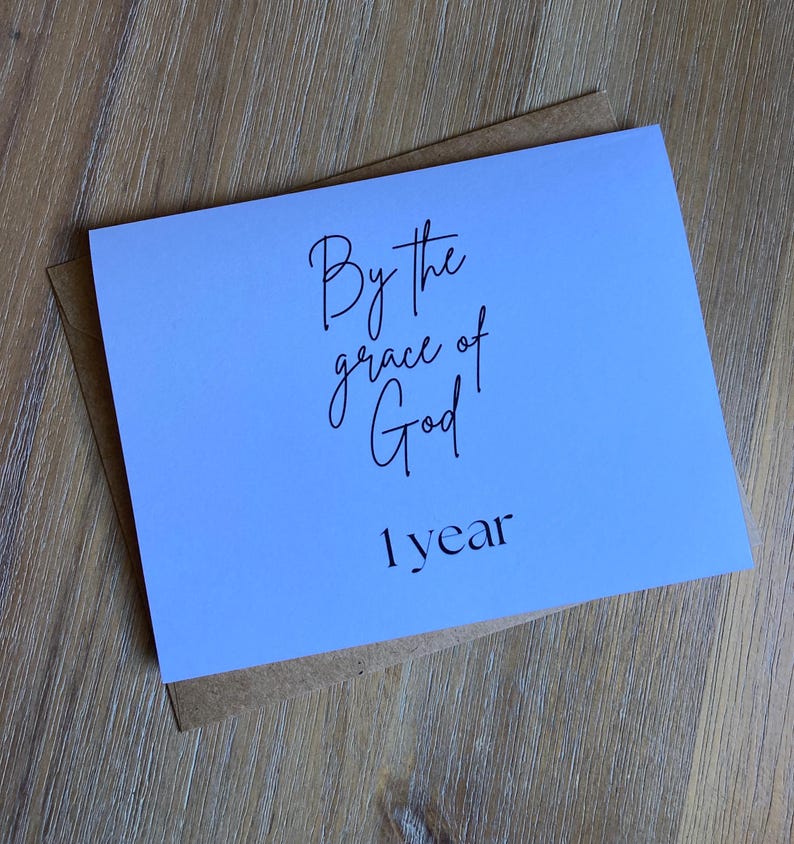 By the
grace of
God
1 year